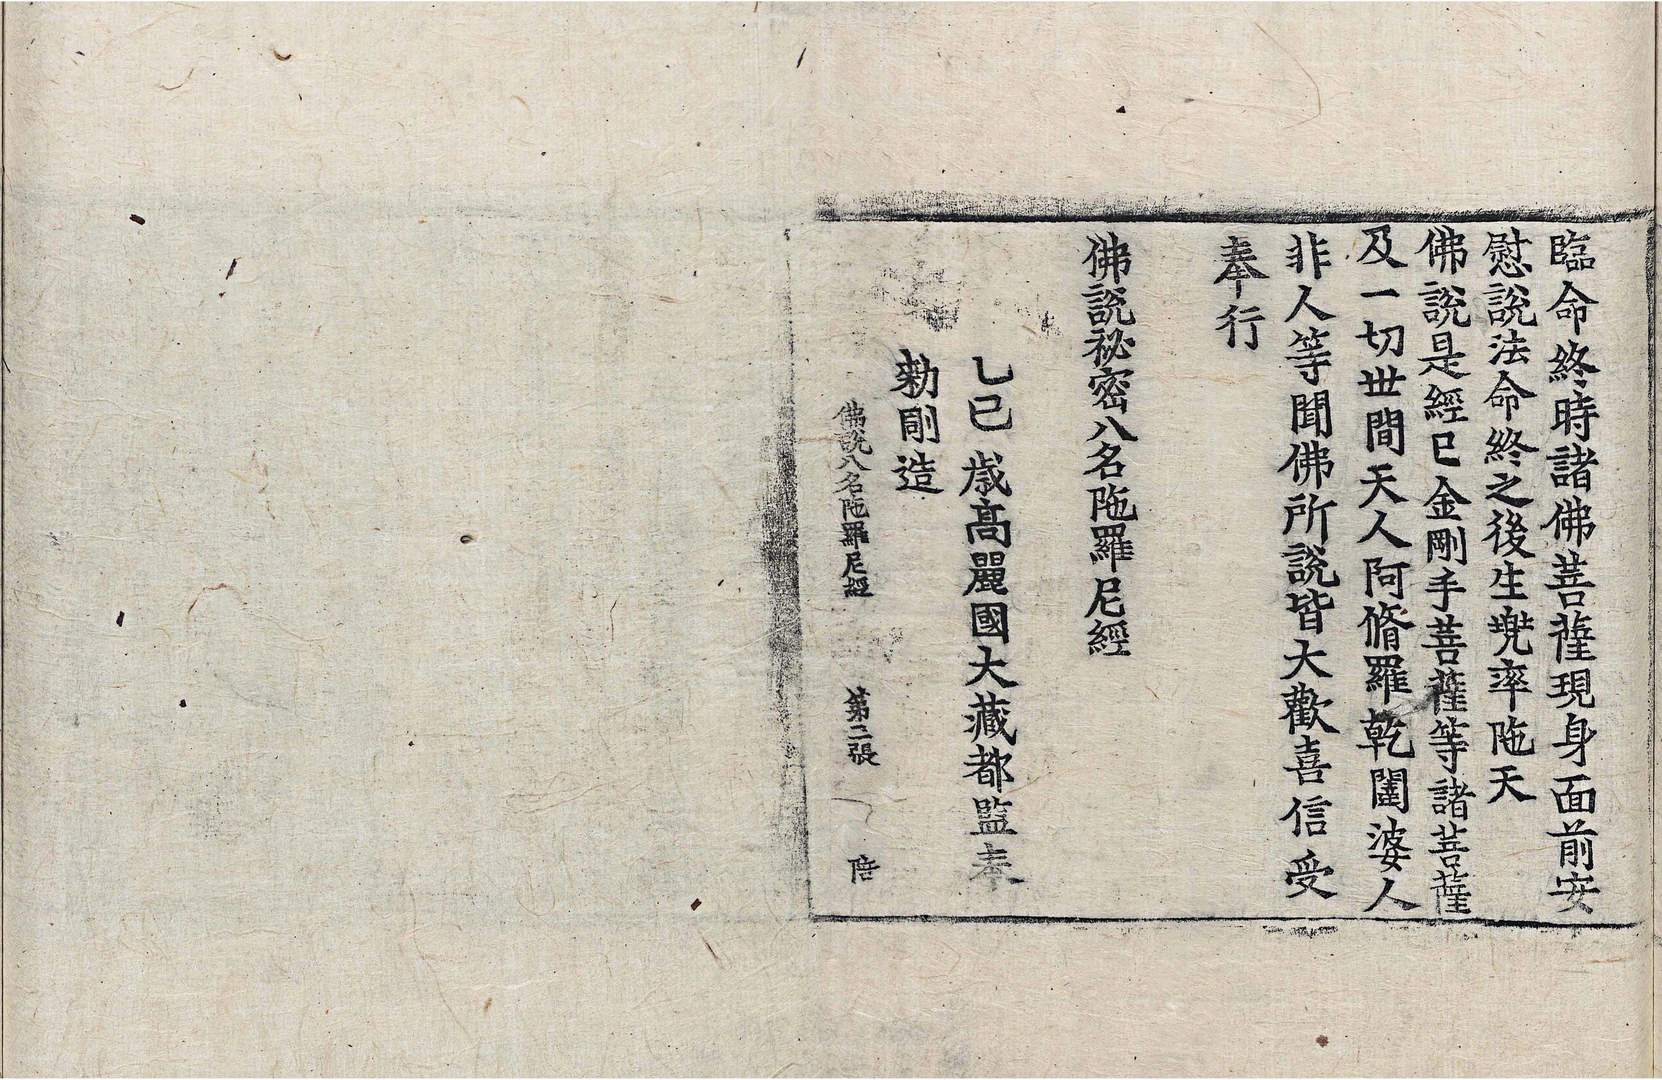 臨命終時諸佛菩薩現身面前安
慰說法命終之後生兜率陁天
佛說是經已金剛手菩薩等諸菩薩
及一切世間天人阿脩羅乾闥婆人
非人等聞佛所說皆大歡喜信受
奉行
佛說祕密八名陁羅尼經
乙巳歲高麗國大藏都監奉
勑彫造
佛說八名陁羅尼經 第二張 倍